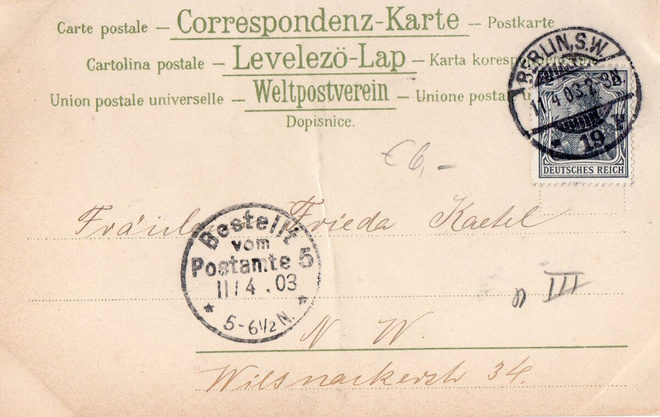 Carte postale – Correspondenz-Karte – Postkarte
Cartolina postale – Levelezö-Lap – Karta korespon
Union postale universelle – Weltpostverein – Unione posta
Dopisnice.
BERLIN, S.W.
11/4 03
* 19
DEUTSCHES REICH
€ 6,-
Frieda
Bestellt
vom
Postamte 5
11/4.03
* 5-6½ N. *
III
N. W.
Wilsnackerstr 34.